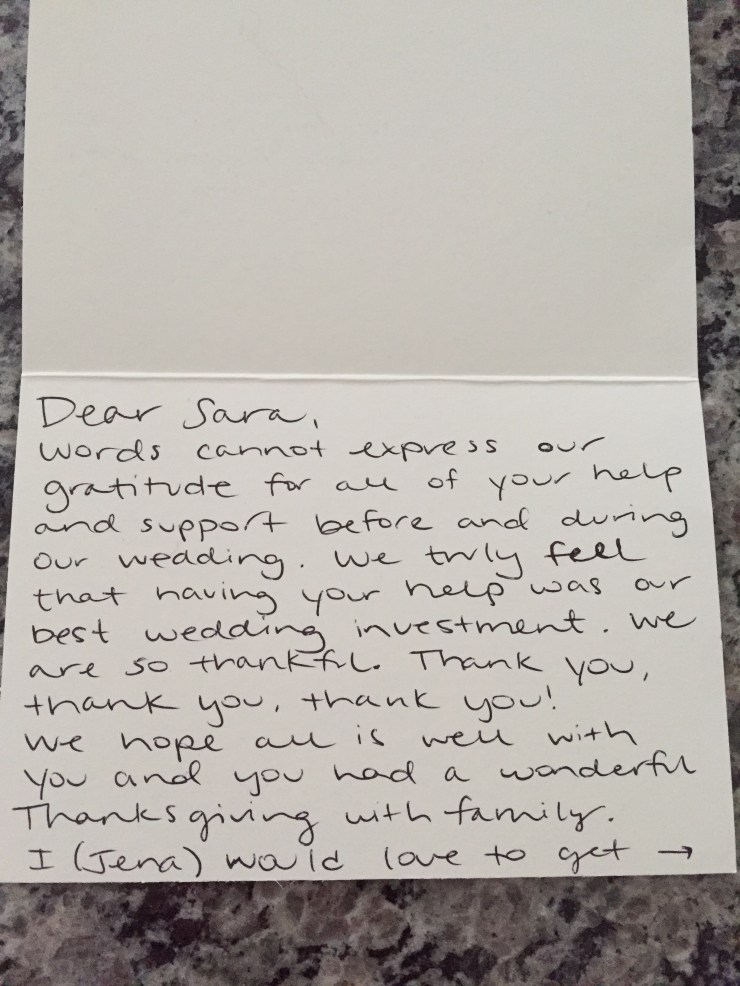 Dear Sara,
Words cannot express our
gratitude for all of your help
and support before and during
our wedding. We truly feel
that having your help was our
best wedding investment. We
are so thankful. Thank you,
thank you, thank you!
We hope all is well with
you and you had a wonderful
Thanksgiving with family.
I (Jena) would love to get →